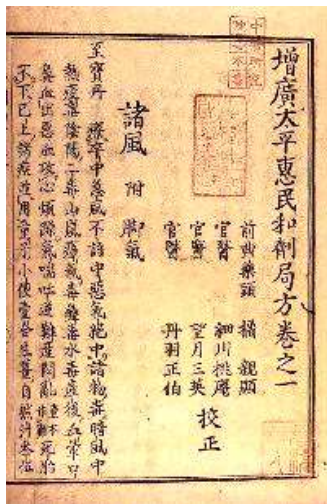 增廣太平惠民和劑局方卷之一
前典藥頭 橘 親顯
官醫 細川桃庵
官醫 望月三英
官醫 丹羽正伯
校正
諸風 附 脚氣
至寶丹 療卒中急風不語中惡氣絕中諸物毒暗風中
熱疫毒陰陽二毒山嵐瘴氣毒蠱毒水毒產後血暈口
鼻血出惡血攻心煩躁氣喘吐逆難產悶亂死胎
不下已上諸疾並用童子小便壹合生薑自然汁